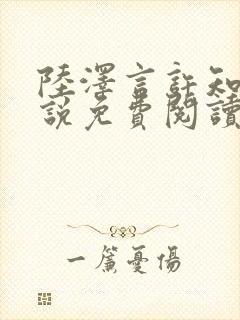 陸澤言許知
說免費閱讀
一簾憂傷